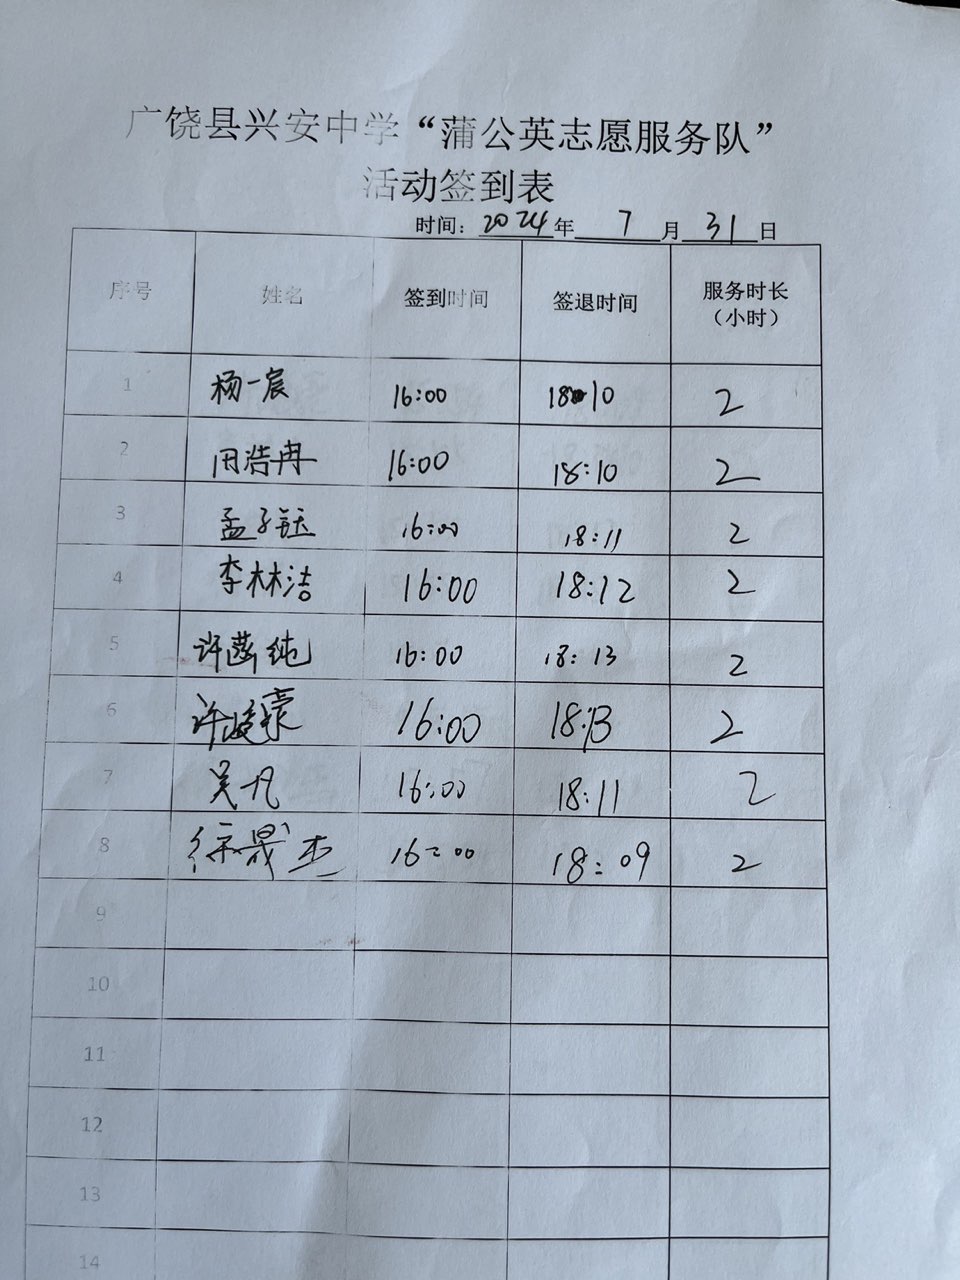 广饶县兴安中学“蒲公英志愿服务队”
活动签到表
时间：2024年 7月31日
序号 姓名 签到时间 签退时间 服务时长（小时）
1 杨一宸 16:00 18:10 2
2 田浩冉 16:00 18:10 2
3 孟子钰 16:00 18:11 2
4 李林洁 16:00 18:12 2
5 许菡纯 16:00 18:13 2
6 许峻豪 16:00 18:13 2
7 吴凡 16:00 18:11 2
8 徐晟杰 16:00 18:09 2
9
10
11
12
13
14